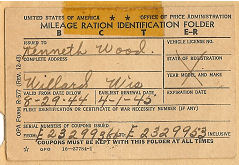 UNITED STATES OF AMERICA ★ OFFICE OF PRICE ADMINISTRATION
MILEAGE RATION IDENTIFICATION FOLDER
B C T E-R
ISSUED TO VEHICLE LICENSE NO.
Kenneth Wood
COMPLETE ADDRESS STATE OF REGISTRATION
YEAR MODEL AND MAKE
Willard Wis
VALID FROM DATE BELOW EARLIEST RENEWAL DATE
8-29-44 4-1-45
FLEET IDENTIFICATION OR CERTIFICATE OF WAR NECESSITY NUMBER (IF ANY)
SERIAL NUMBERS OF COUPONS ISSUED
INCLUSIVE
COUPONS MUST BE KEPT WITH THIS FOLDER AT ALL TIMES
GPO
OPA Form R-577